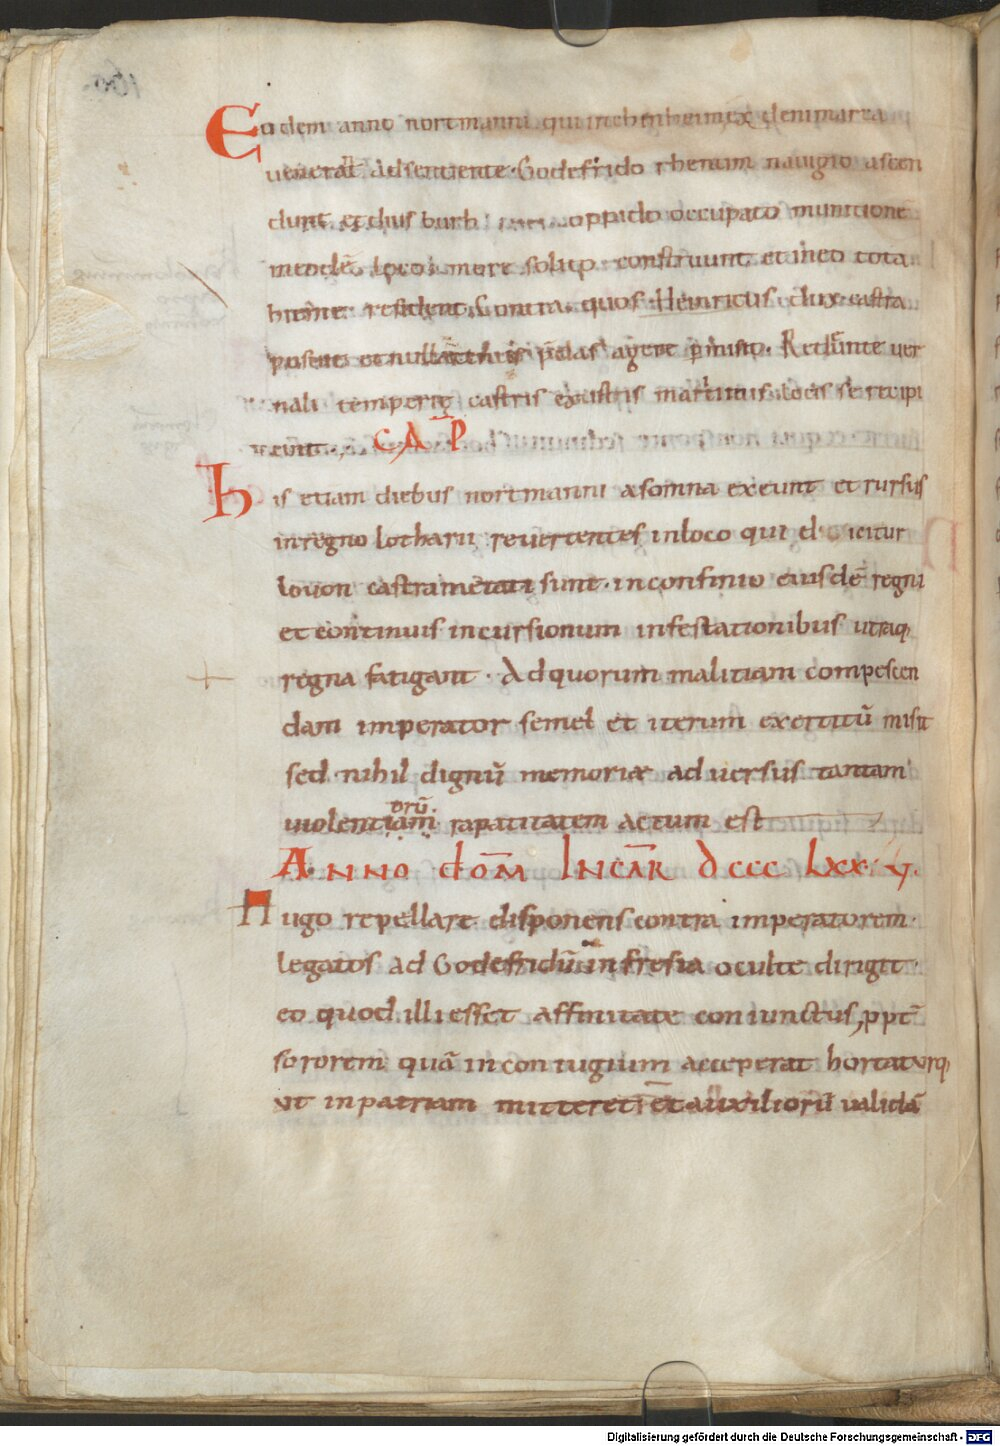 Eodem anno nortmanni qui inchinheim ex denimarca
uenerāt adsentiente Godefrido rhenum nauigio ascen
dunt et dius burh oppido occupato munitionē
meodē loco more solito construunt et ineo tota
hieme resident Contra quos Heinricus dux castra
posuit et nullatenus p̄das agere p̄misit. Redeūnte uer
nali tempore castris exustis maritimis locis se recipi
unt CAP̄
His etiam diebus nortmanni asomna exeunt et rursus
inregno lotharii reuertentes inloco qui dicitur
louon castrametati sunt. inconfinio eiusdē regni
et continuis incursionum infestationibus utraq;
regna fatigant. Ad quorum malitiam compescen
dam imperator semel et iterum exercitū misit
sed nihil dignū memoriæ aduersus tantam
orū.
uiolentiam rapatitatem actum est
ANNO doM̄ INCAR̄ DCCC LXX.V.
Hugo repellare disponens contra imperatorem.
legatos ad Godefridū infresia oculte dirigit.
eo quod illi esset affinitate coniunctus, ppt̄
sororem quā inconiugium acceperat hortaturq;
ut inpatriam mitteret et auxiliorū ualidā
Digitalisierung gefördert durch die Deutsche Forschungsgemeinschaft - DFG